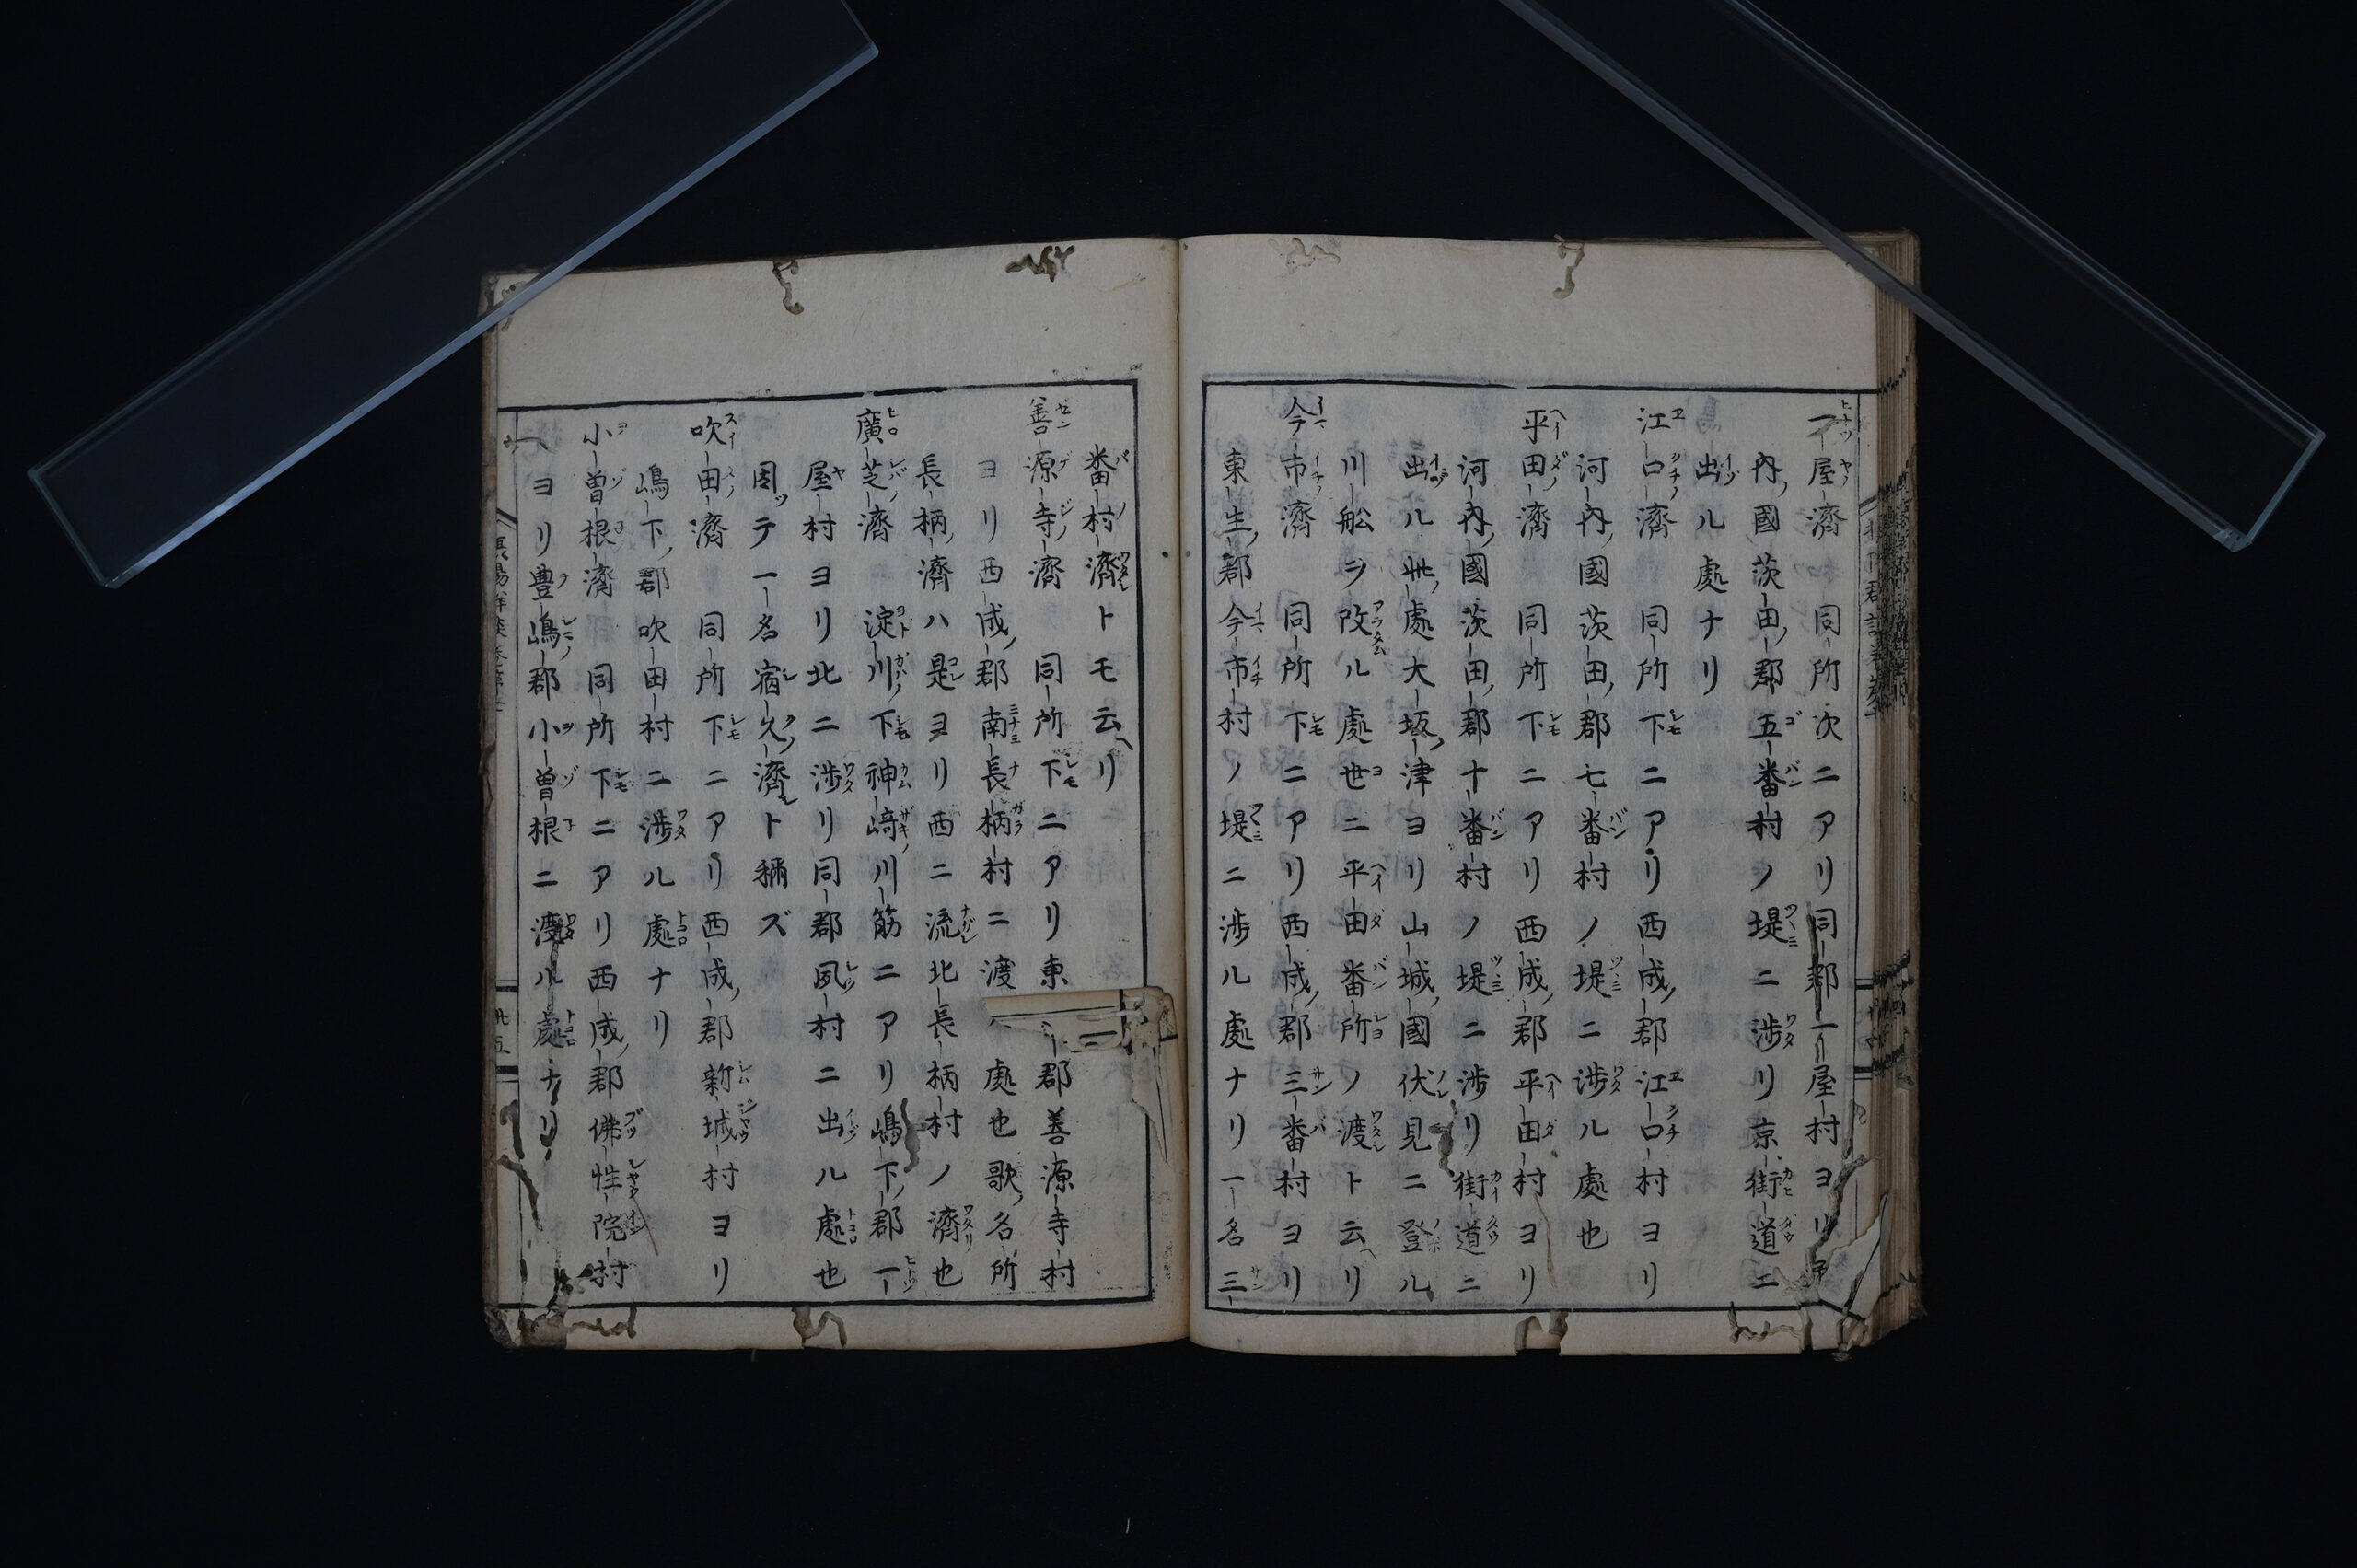 一屋済　同所次ニアリ同郡一屋村ヨリ河
内国茨田郡五番村ノ堤ニ渉リ京街道ニ
出ル處ナリ
江口済　同所下ニアリ西成郡江口村ヨリ
河内國茨田郡七番村ノ堤ニ渉ル處也
平田済　同所下ニアリ西成郡平田村ヨリ
河内國茨田郡十番村ノ堤ニ渉リ街道ニ
出ル此處大坂津ヨリ山城國伏見ニ登ル
川舩ヲ改ル處世ニ平田番所ノ渡ト云リ
今市濟　同所下ニアリ西成郡三番村ヨリ
東生郡今市村ノ堤ニ渉ル處ナリ一名三
番村濟トモ云リ
善源寺濟　同所下ニアリ東郡善源寺村
ヨリ西成郡南長柄村ニ渡處也歌名所
長柄濟ハ是ヨリ西ニ流北長柄村ノ濟也
廣芝濟　淀川下神﨑川筋ニアリ嶋下郡一
屋村ヨリ北ニ渉リ同郡夙村ニ出ル處也
因テ一名宿久濟ト稱ズ
吹田濟　同所下ニアリ西成郡新城村ヨリ
嶋下郡吹田村ニ渉ル處ナリ
小曽根濟　同所下ニアリ西成郡佛性院村
ヨリ豊嶋郡小曽根ニ渡ル處ナリ
廿五